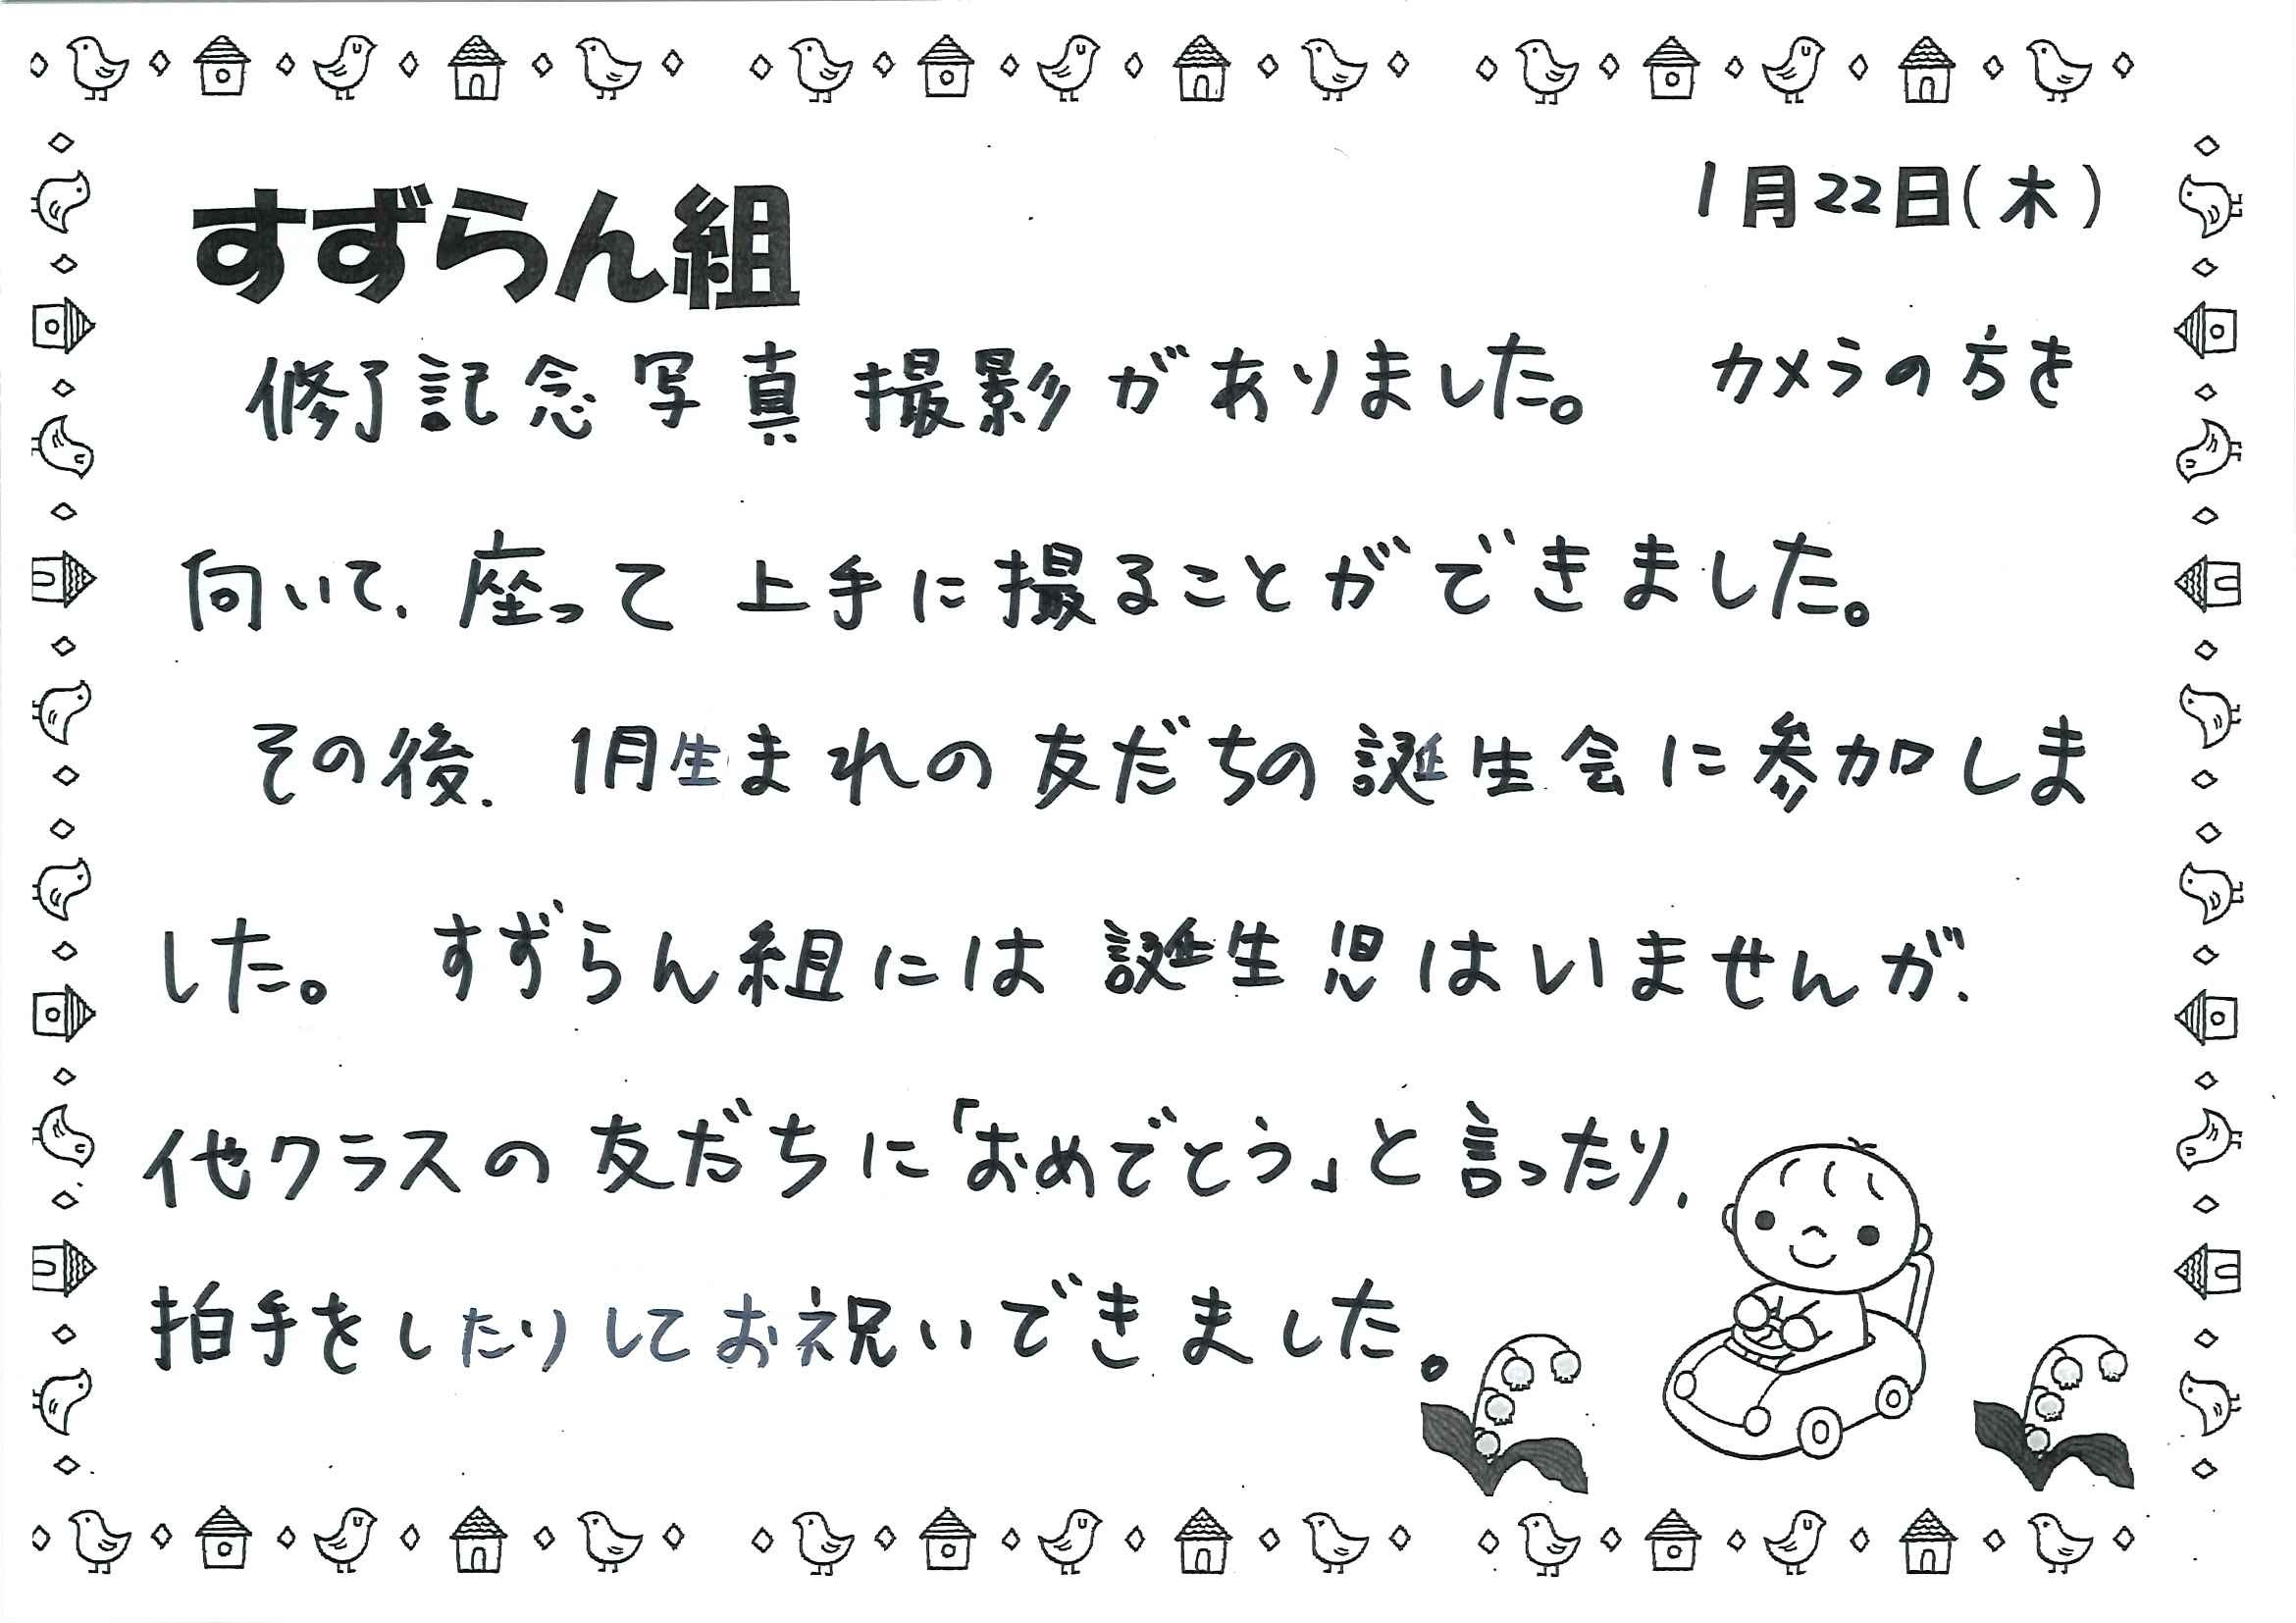 1月22日(木)
すずらん組
修了記念写真撮影がありました。 カメラの方を
向いて、座って上手に撮ることができました。
その後、1月生まれの友だちの誕生会に参加しま
した。 すずらん組には誕生児はいませんが、
他クラスの友だちに「おめでとう」と言ったり、
拍手をしたりしてお祝いできました。